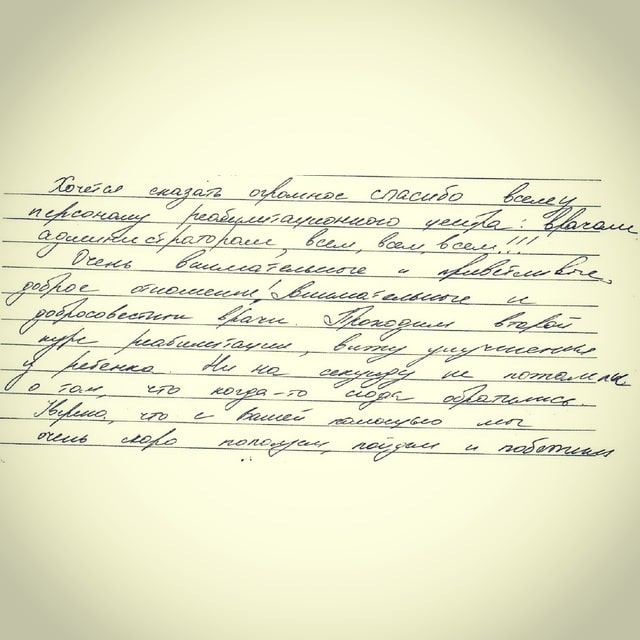 Хочется сказать огромное спасибо всему
персоналу реабилитационного центра: врачам,
администраторам, всем, всем, всем!!!
Очень внимательные и приветливые,
доброе отношение! Внимательные и
добросовестные врачи. Проходим второй
курс реабилитации, вижу улучшения
у ребенка. Ни на секунду не пожалели
о том, что когда-то сюда обратились.
Уверена, что с вашей помощью мы
очень скоро поползем, пойдем и побежим